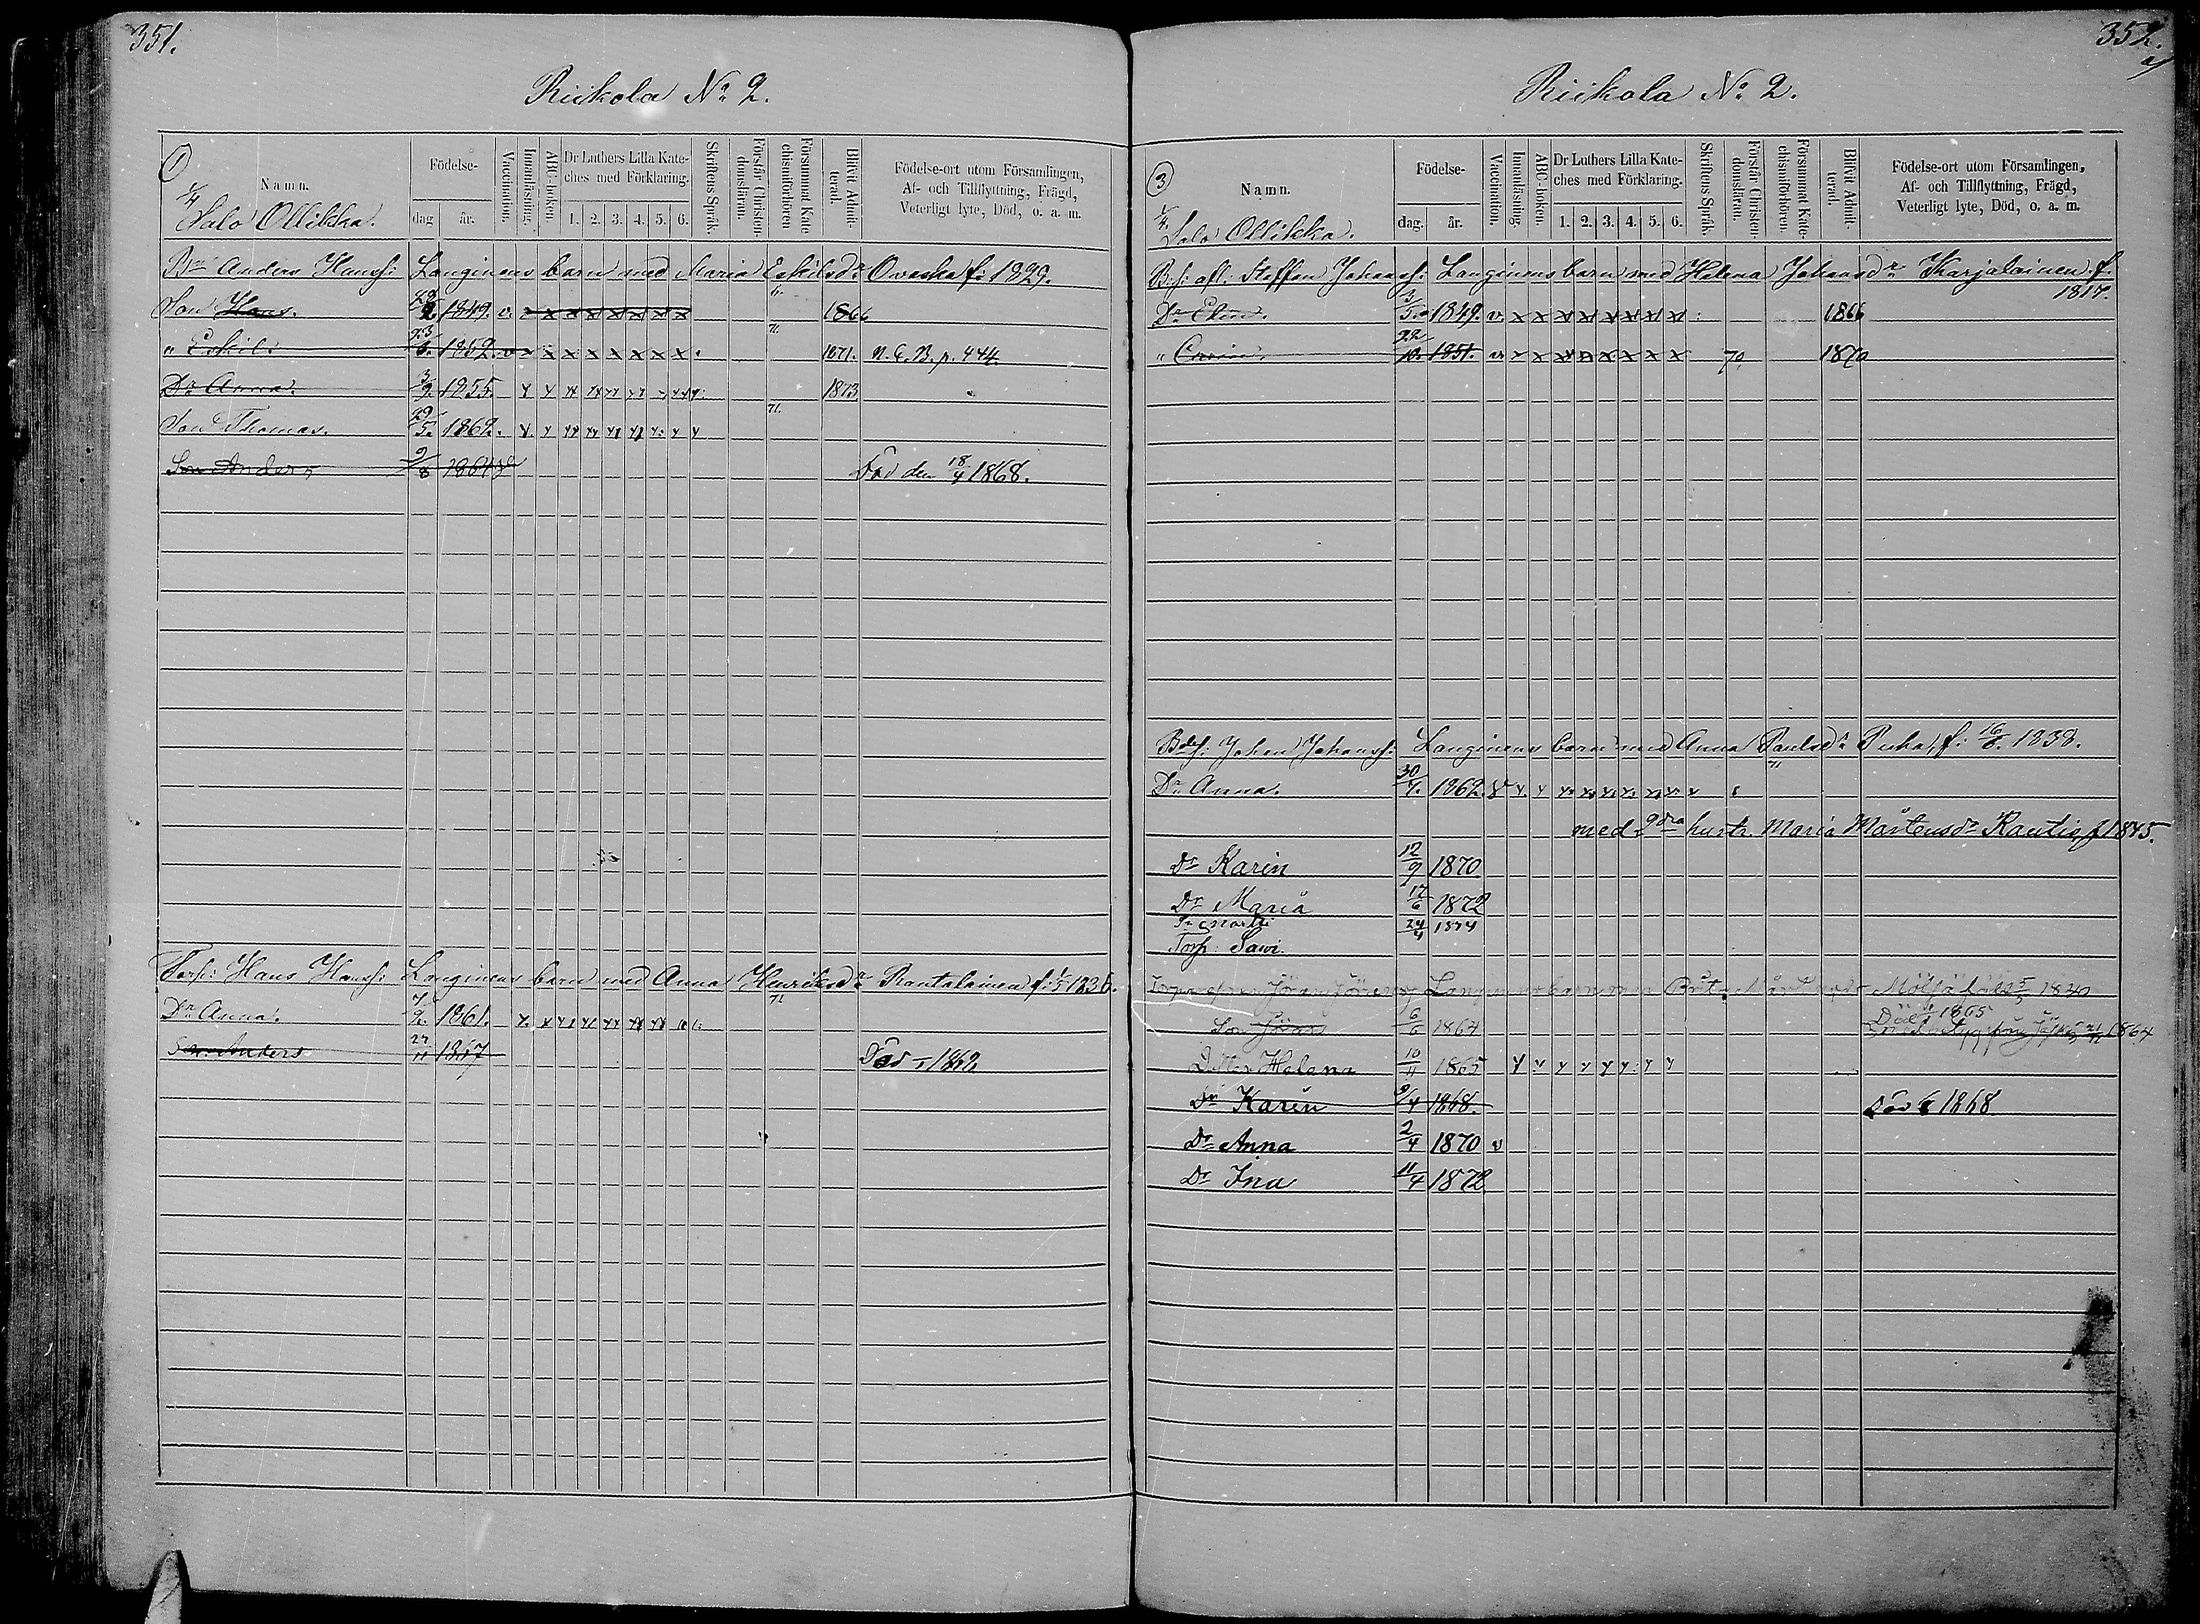 351.
Riikola No 2.
1
Namn.
Födelse-
dag
år.
Vaccination.
Innanläsning.
ABC-boken.
Dr Luthers Lilla Kate-
ches med Förklaring.
1. 2. 3. 4. 5. 6.
Skriftens Språk.
Förstår Christen-
domsläran.
Försummat Kate-
chismiförhören
Blivit Admit-
terad.
Födelse-ort utom Församlingen,
Af- och Tillflyttning, Frägd,
Veterligt lyte, Död, o. a. m.
Salo Ollikka.
Anders Hansf: Langinens barn med Maria Eskilsdr Owaska f: 1829.
Son Hans. 1849. v. x x x x x x x x 1866
" Eskil. 23 1852. v x x x x x x x x 1871. N. C. B. p. 444.
Dr Anna. 3/9. 1855. 1873
Son Thomas. 29/5. 1862. 71.
Son Anders 9/8 1864 Död den 18/4 1868.
Torp: Hans Hansf: Langinens barn med Anna Henriksdr Rantalainen f: 1836.
Dr Anna. 1861. 71
Son Anders 27/11 1867 Död 1869
352.
a/
Riikola No 2.
3
Namn.
Födelse-
dag.
år.
Vaccination.
Innanläsning.
ABC-boken.
Dr Luthers Lilla Kate-
ches med Förklaring.
1. 2. 3. 4. 5. 6.
Skriftens Språk.
Förstår Christen-
domsläran.
Försummat Kate-
chismiförhören.
Blivit Admit-
terad.
Födelse-ort utom Församlingen,
Af- och Tillflyttning, Frägd,
Veterligt lyte, Död, o. a. m.
Salo Ollikka.
afl. Steffan Johansf: Langinens barn med Helena Johansdr Karjalainen f.
1817.
Dr Elin. 3/5. 1849. v. x x x x x x x x 1866
" Carin. 22/10. 1851. v x x x x x x x x 70. 1870
Johan Johansf: Langinens barn med Anna Paulsdr Puha, f: 16/6. 1838.
Dr Anna. 30/7. 1862. 71
med 2dra hustr. Maria Mårtensdr Rautio, f 1845.
Dr Karin 12/9 1870
Dr Maria 17/6 1872
24/4 1874
Torp: Sawi.
1840
Död 1865
Son Jöran 6/6 1864 1864
Dotter Helena 10/11 1865
Dr Karin 9/4 1868. Död 1868
Dr Anna 2/4 1870 v
Dr Ina 11/4 1872